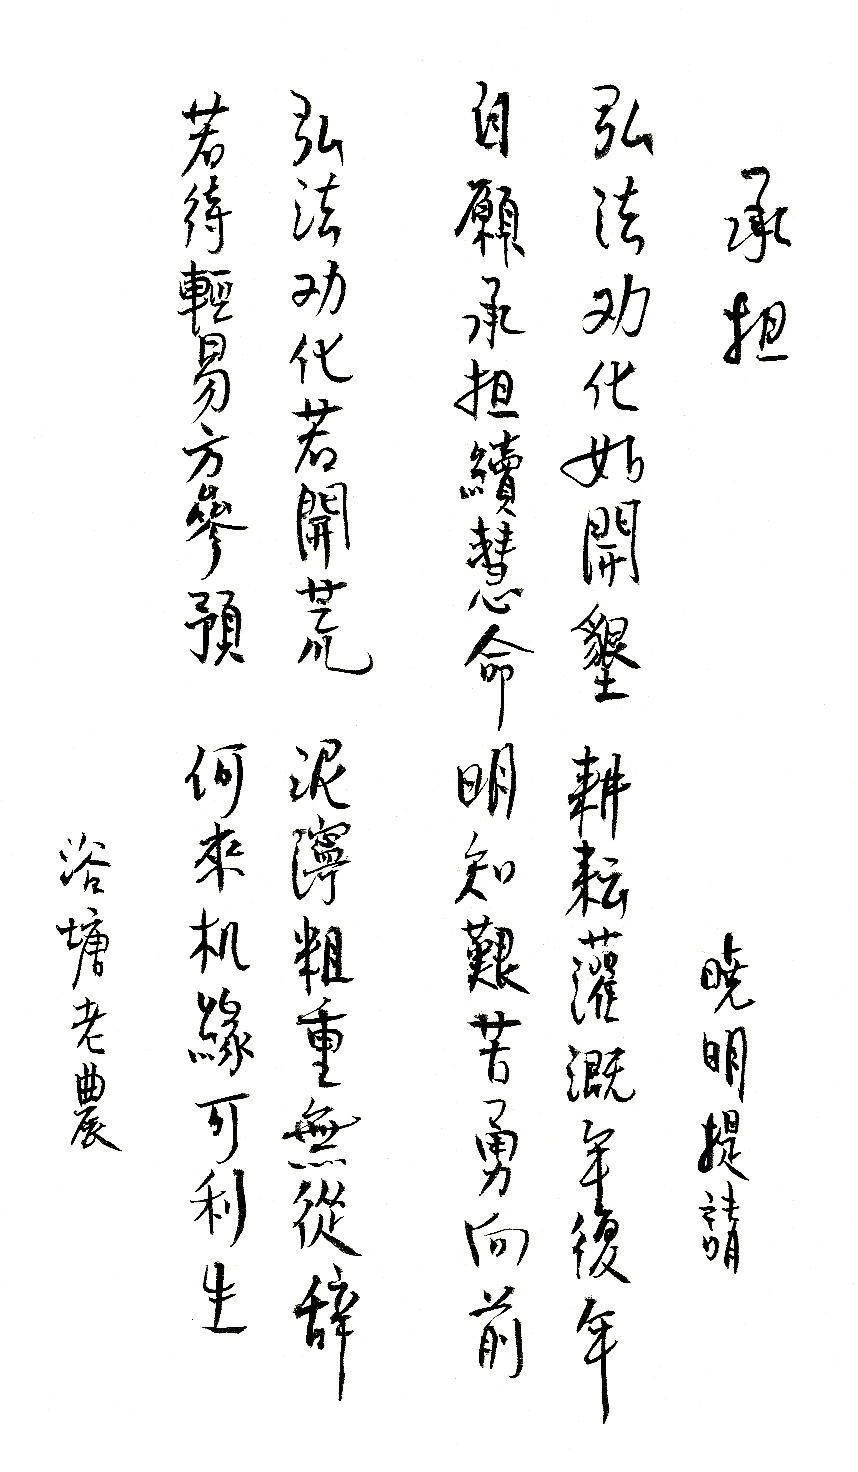 承担
曉明提請
弘法劝化如開墾 耕耘灌溉年復年
自願承担續慧命 明知艱苦勇向前
弘法劝化若開荒 泥濘粗重無從辞
若待輕易方參預 何來机緣可利生
浴塘老農